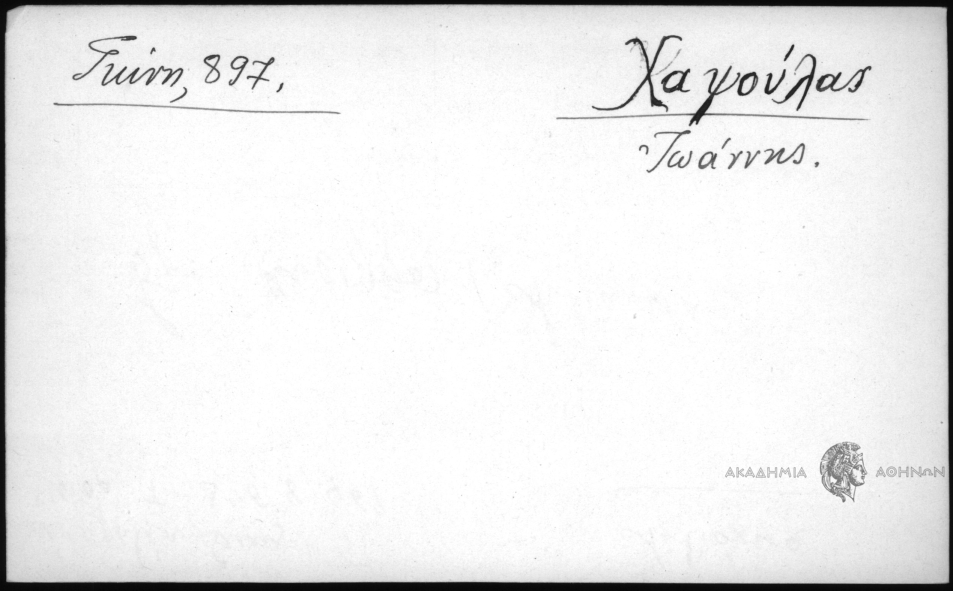 Γκίνη, 897.
Χαψούλας
Ἰωάννης.
ΑΚΑΔΗΜΙΑ ΑΘΗΝΩΝ